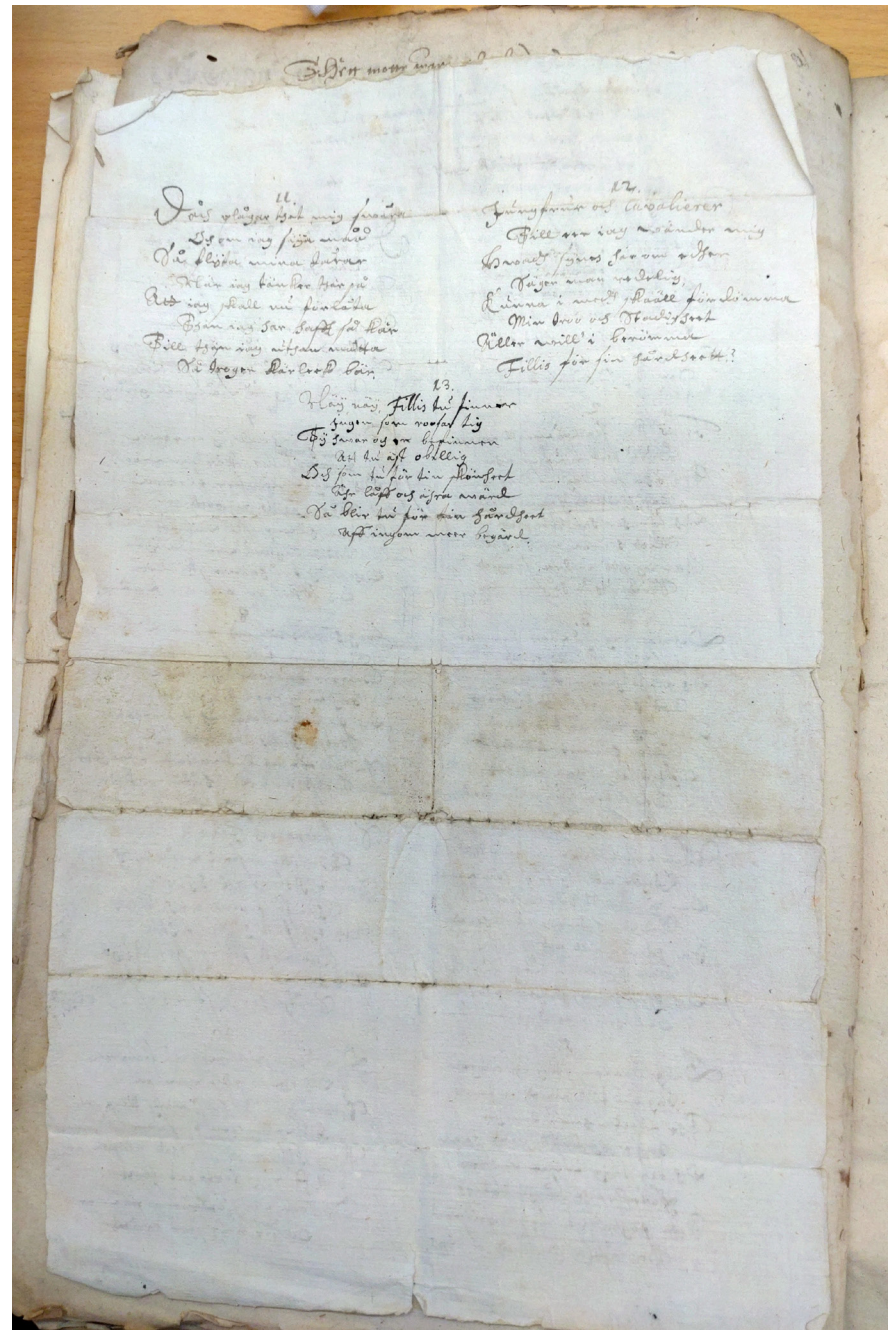 11.
Doch plågar thet mig swåra
Och om jag sija må
Så flyta mina tårar
När iag täncker ther på
Att iag skall nu förlåta
Then iag har hafft så kär
Till then iag uthan måtta
Så trogen kärleek bär.
12.
Jungfrur och Cavalierer
Till ere iag wänder mig
Hwadh synes här om edher
Säger man redelig,
Kunna i medh skääll fördömma
Min troo och Stadigheet
Äller will i berömma
Fillis för sin hårdheett?
13.
Näij näij, Fillis tu finner
Ingen som roosar tig
Tÿ hwar och en besinner
Att tu äst obillig
Och som tu för tin skönheet
Ähr låff och ähra wärd
Så blir tu för tin hårdheet
Aff ingom meer begärd.